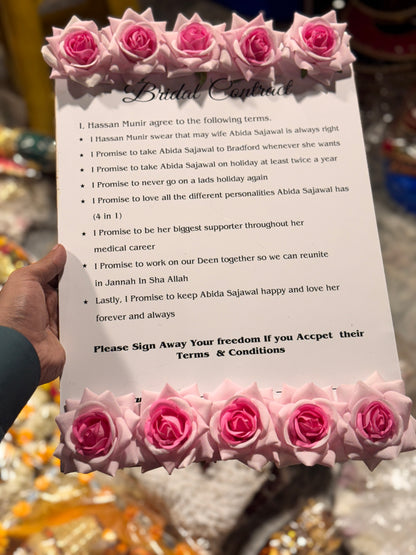 Bridal Contract
I, Hassan Munir agree to the following terms.
★ I Hassan Munir swear that may wife Abida Sajawal is always right
★ I Promise to take Abida Sajawal to Bradford whenever she wants
★ I Promise to take Abida Sajawal on holiday at least twice a year
★ I Promise to never go on a lads holiday again
★ I Promise to love all the different personalities Abida Sajawal has
(4 in 1)
★ I Promise to be her biggest supporter throughout her
medical career
★ I Promise to work on our Deen together so we can reunite
in Jannah In Sha Allah
★ Lastly, I Promise to keep Abida Sajawal happy and love her
forever and always
Please Sign Away Your freedom If you Accpet their
Terms & Conditions